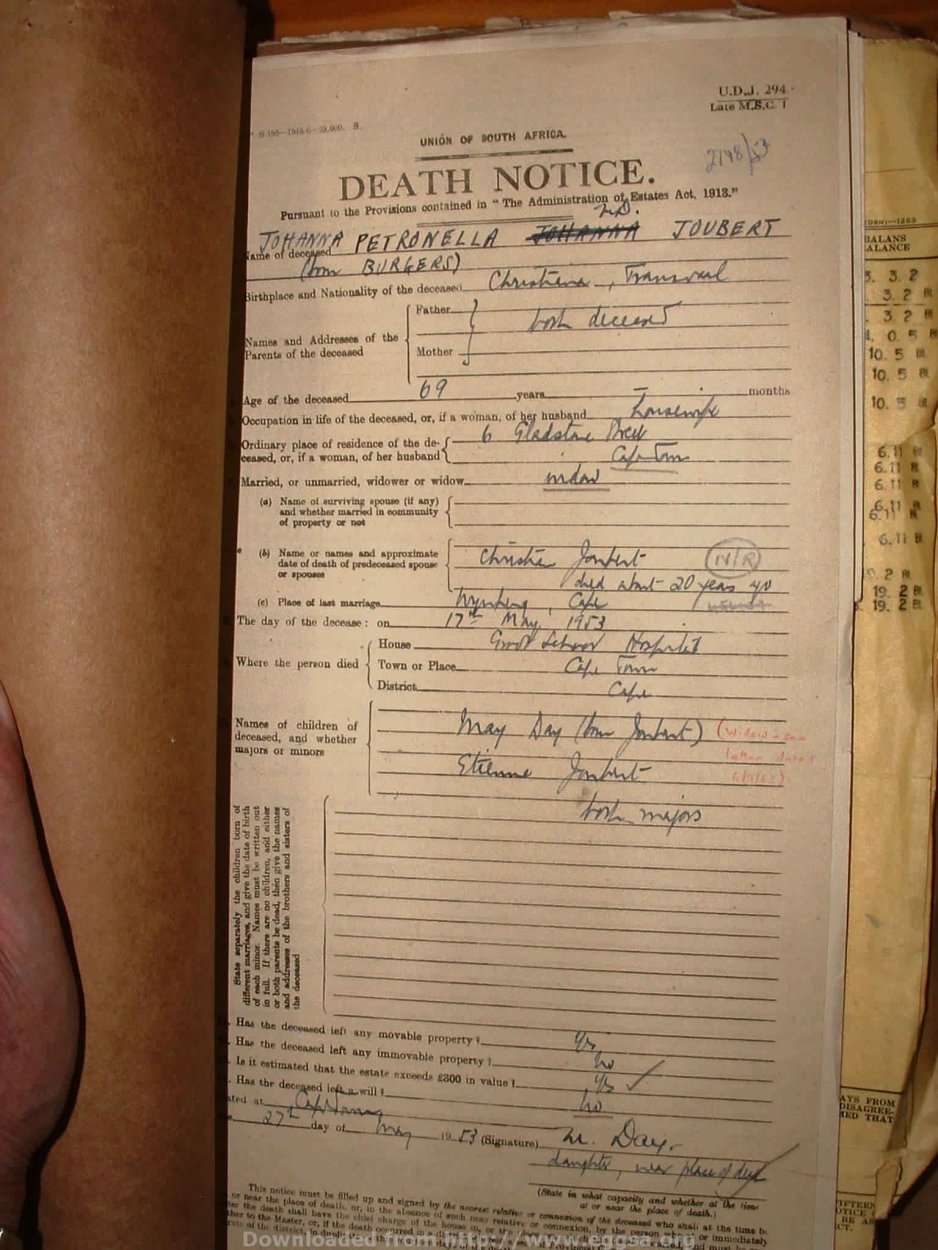 U.D.J. 294
Late M.S.C. 1
S 105—1945-6—25,000. S.
UNION OF SOUTH AFRICA.
2148/53
DEATH NOTICE.
Pursuant to the Provisions contained in "The Administration of Estates Act, 1913."
M.D.
JOHANNA PETRONELLA JOHANNA JOUBERT
Name of deceased
(born BURGERS)
Birthplace and Nationality of the deceased Christiana, Transvaal
Names and Addresses of the Parents of the deceased
Father
both deceased
Mother
Age of the deceased 69 years — months
Occupation in life of the deceased, or, if a woman, of her husband housewife
Ordinary place of residence of the deceased, or, if a woman, of her husband
6 Gladstone Street
Cape Town
Married, or unmarried, widower or widow widow
(a) Name of surviving spouse (if any)
and whether married in community
of property or not
(b) Name or names and approximate
date of death of predeceased spouse
or spouses
Christian Joubert N/R
died about 20 years ago
(c) Place of last marriage Wynberg, Cape
The day of the decease: on 17th May, 1953
Where the person died
House Groot Schuur Hospital
Town or Place Cape Town
District Cape
Names of children of
deceased, and whether
majors or minors
May Day (born Joubert) (Widow - see
letter dated
Etienne Joubert 6/7/55)
both majors
State separately the children born of
different marriages, and give the date of birth
of each minor. Names must be written out
in full. If there are no children, and either
or both parents be dead, then give the names
and addresses of the brothers and sisters of
the deceased
Has the deceased left any movable property? Yes
Has the deceased left any immovable property? No
Is it estimated that the estate exceeds £300 in value? Yes ✓
Has the deceased left a will? No
ated at Cape Town
27th day of May 1953 (Signature) M. Day.
daughter, near place of death
(State in what capacity and whether at the time
at or near the place of death.)
This notice must be filled up and signed by the nearest relative or connexion of the deceased who shall at the time be
or near the place of death, or, in the absence of such near relative or connexion, by the person who
the death shall have the chief charge of the house in, or the
to the Master, or, if the death occurred
of the district.
Downloaded from http://www.eggsa.org
1263
BALANS
ALANCE
3. 3. 2
3. 2
3. 2
0. 5
10. 5
10. 5
10. 5
6.11
6.11
6.11
6.11
6.11
6.11
2
19. 2
19. 2
AYS FROM
DISAGREE-
MED THAT